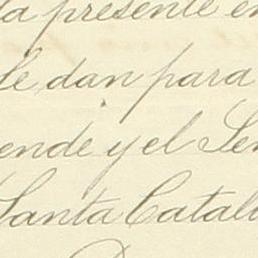 la presente en
le dan para
ende y el Se
Santa Catal